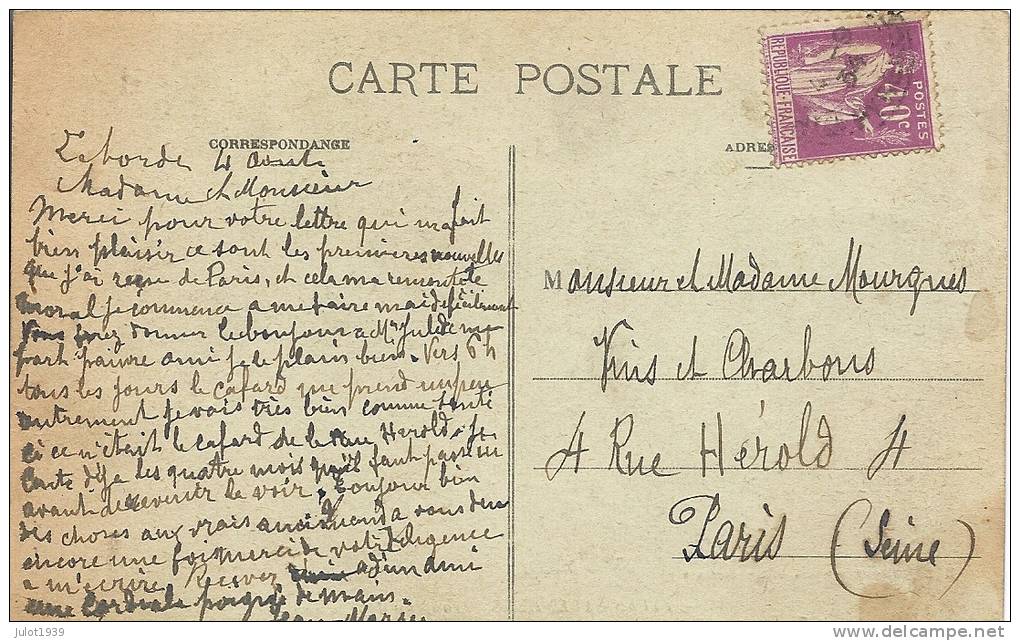 CARTE POSTALE
CORRESPONDANCE
ADRES
REPUBLIQUE FRANÇAISE
POSTES
40c
Laborde 4 Aout
Madame et Monsieur
Merci pour votre lettre qui ma fait
bien plaisir ce sont les premieres nouvelles
que j'ai reçue de Paris, et cela ma remonté le
moral je commence a me faire mais dificilement
Vous donner le bonjour a Mr
pauvre ami je le plains bien. Vers 6h
tous les jours le cafard me prend un peu
autrement je vais très bien comme santé
ci ce n'était le cafard de la rue Hérold, je
conte déja les quatre mois qu'il faut passer ici
avant de revenir le voir, Toujours bien
des choses aux vrais amis a vous deux
encore une fois merci de votre diligence
a m'écrire. Recever d'un ami
une cordiale poigné de mains.
Jean
Monsieur et Madame Mourgues
Vins et Charbons
4 Rue Hérold 4
Paris (Seine)
julot1939
delcampe.net